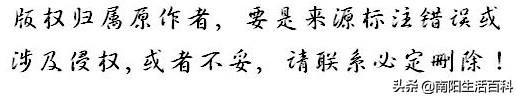 版权归属原作者，要是来源标注错误或
涉及侵权,或者不妥，请联系必定删除！
头条@南阳生活百科